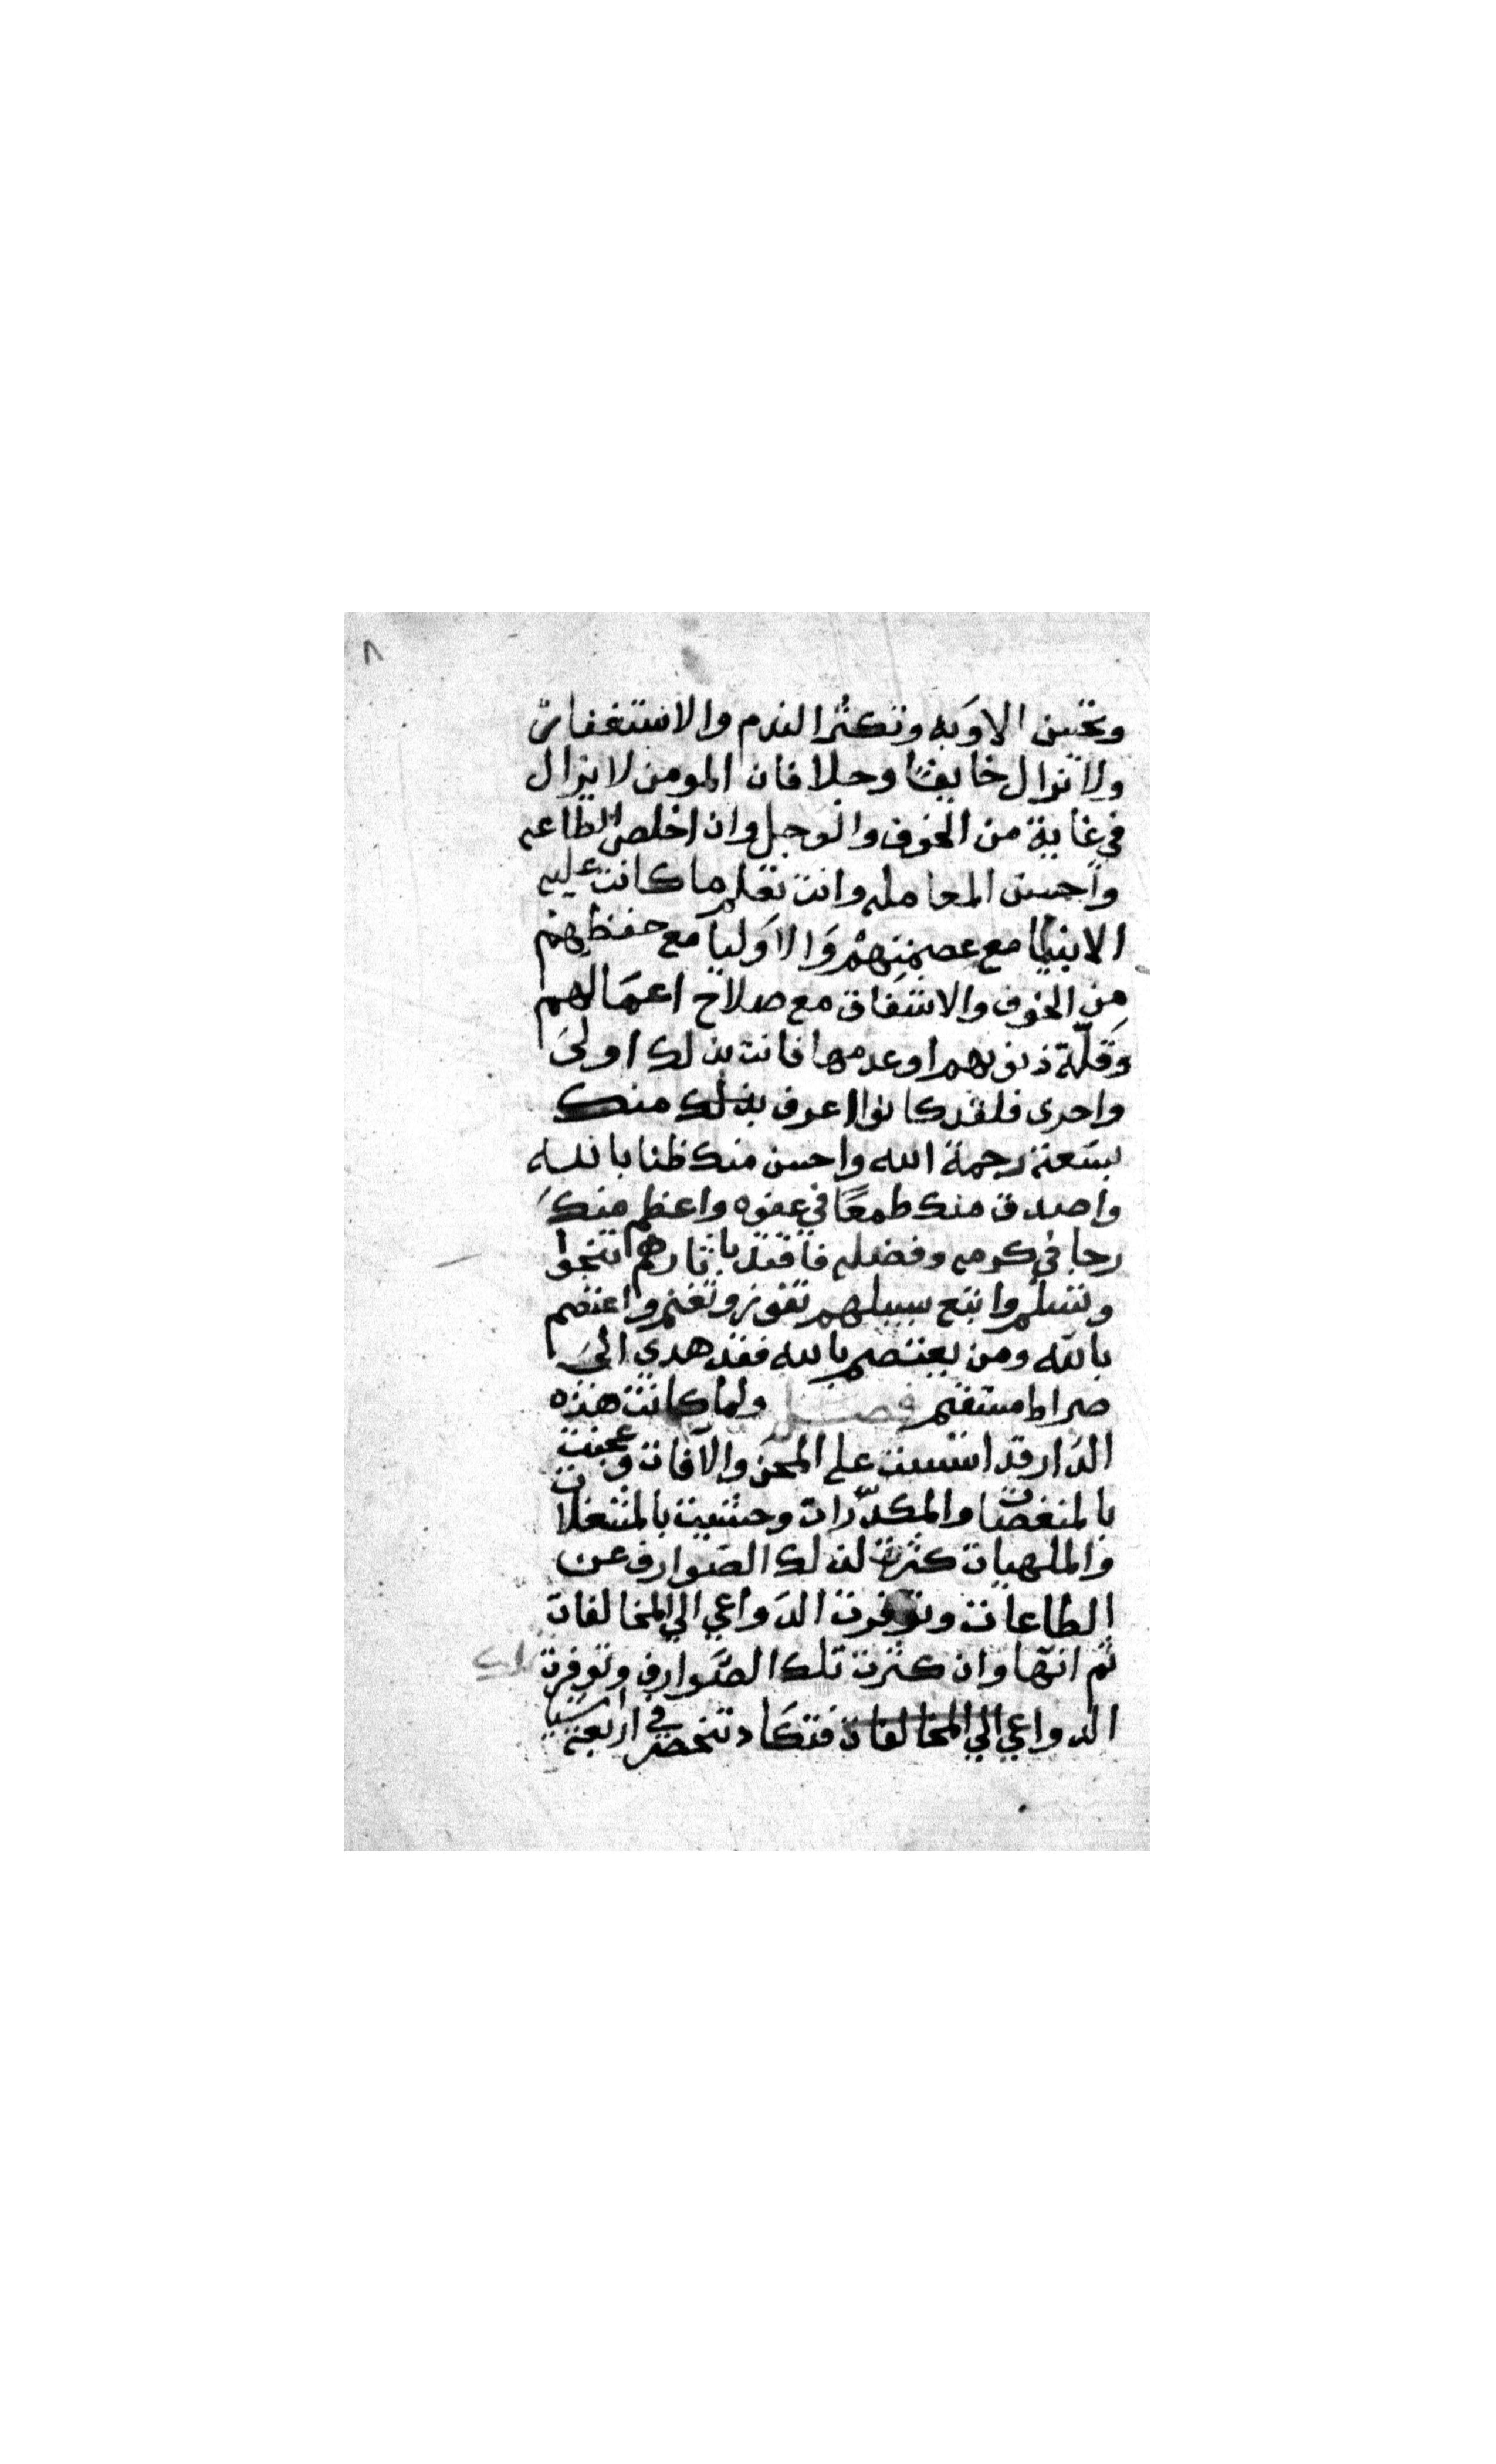 ٨
وتحسن الاوَبه وتكثُر الندم والاستغفار
ولا تزال خايفًا وجلا فان المومن لا يزال
في غاية من الخوف والوجل وان اخلص الطاعه
واحسن المعامله وانت تعلم ما كانت عليه
الانبيا مع عصمتِهمْ وَالاَوليا مَع حفظِهِمْ
مِن الخوف والاشفاق مع صلاح اعمَالهم
وَقلّة ذنوبهم او عدمها فانت بذلك اولىَ
واحرى فلقد كانوا اعرف بذلك منك
بسَعة رحمة الله واحسن منك ظنا بالله
واصدق منك طمعًا في عفوه واعظم منكَ
رجا في كرمه وفضله فاقتد باثارهم تنجوا
وتسلم واتبع سبيلهم تفوز وتغنم واعتصم
بالله ومن يعتصم بالله فقد هدي الىَ
صراط مستقيم فصل ولما كانت هذه
الدَار قد اسست على المحن والآفات وعجنت
بالمنغصات والمكدّرات وحشيت بالمشغلات
والملهيات كثرت لذلك الصَوارف عن
الطاعات وتوفرت الدَواعي الي المخالفات
ثم انّها وان كثرت تلك الصَّوارف وتوفرت تلك
الدواعي الي المخالفات فتكَاد تنحصر في اربعة اشيا